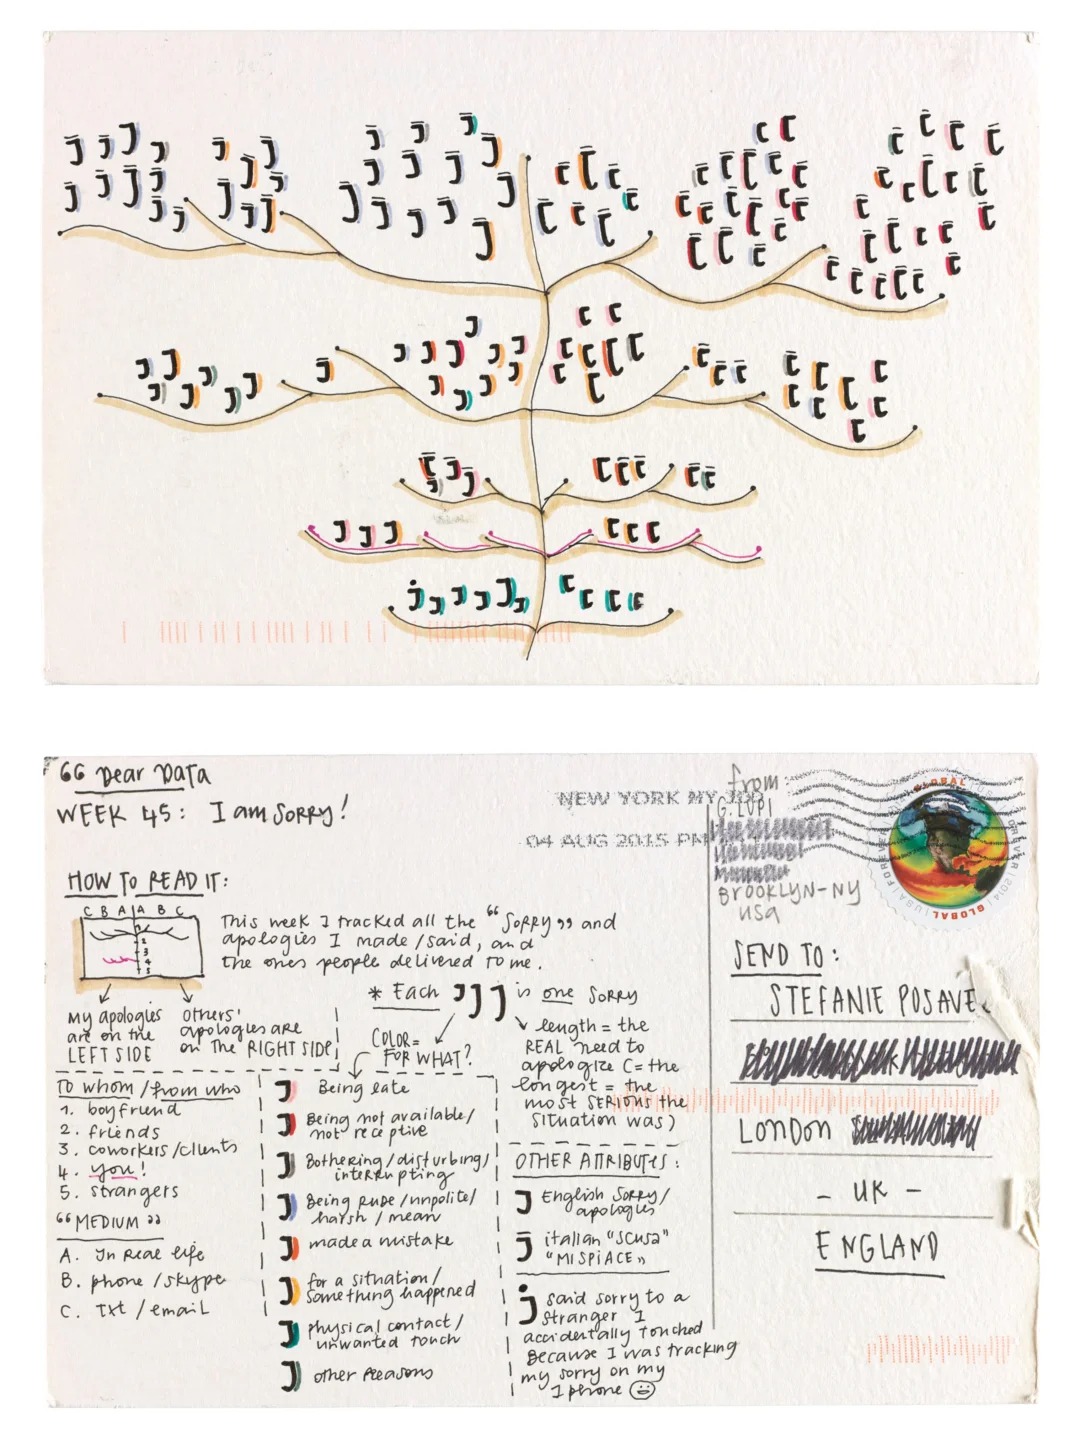 “ Dear Data
WEEK 45: I am Sorry!
NEW YORK NY
04 AUG 2015 PM
from:
G. LUPI
BROOKLYN-NY
USA
GLOBAL
FOREVER
USA
2014
GLOBAL
HOW TO READ IT:
C B A A B C
1
2
3
4
5
This week I tracked all the “Sorry” and
apologies I made/said, and
the ones people delivered to me.
My apologies
are on the
LEFT SIDE
others'
apologies are
on the RIGHT SIDE
* Each is one sorry
COLOR=
FOR WHAT?
length = the
REAL need to
apologize (= the
longest = the
most SERIOUS the
situation was)
To whom / from who
1. boyfriend
2. friends
3. coworkers/clients
4. you!
5. strangers
“MEDIUM”
A. In real life
B. phone/skype
C. txt/email
Being late
Being not available/
not receptive
Bothering/disturbing/
interrupting
Being rude/unpolite/
harsh/mean
made a mistake
for a situation/
something happened
physical contact/
unwanted touch
other reasons
OTHER ATTRIBUTES:
English sorry/
apologies
italian “scusa”
“MISPIACE”
said sorry to a
stranger I
accidentally touched
because I was tracking
my sorry on my
Iphone
SEND TO:
STEFANIE POSAVE
LONDON
- UK -
ENGLAND